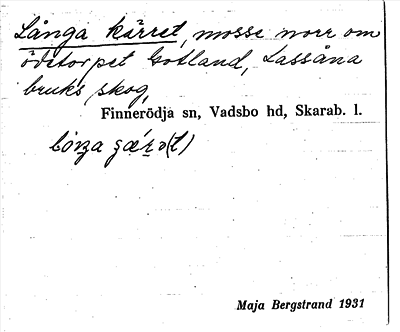 Långa kärret, mosse norr om
ödetorpet Gotland, Lassåna
bruks skog,
Finnerödja sn, Vadsbo hd, Skarab. l.
Maja Bergstrand 1931